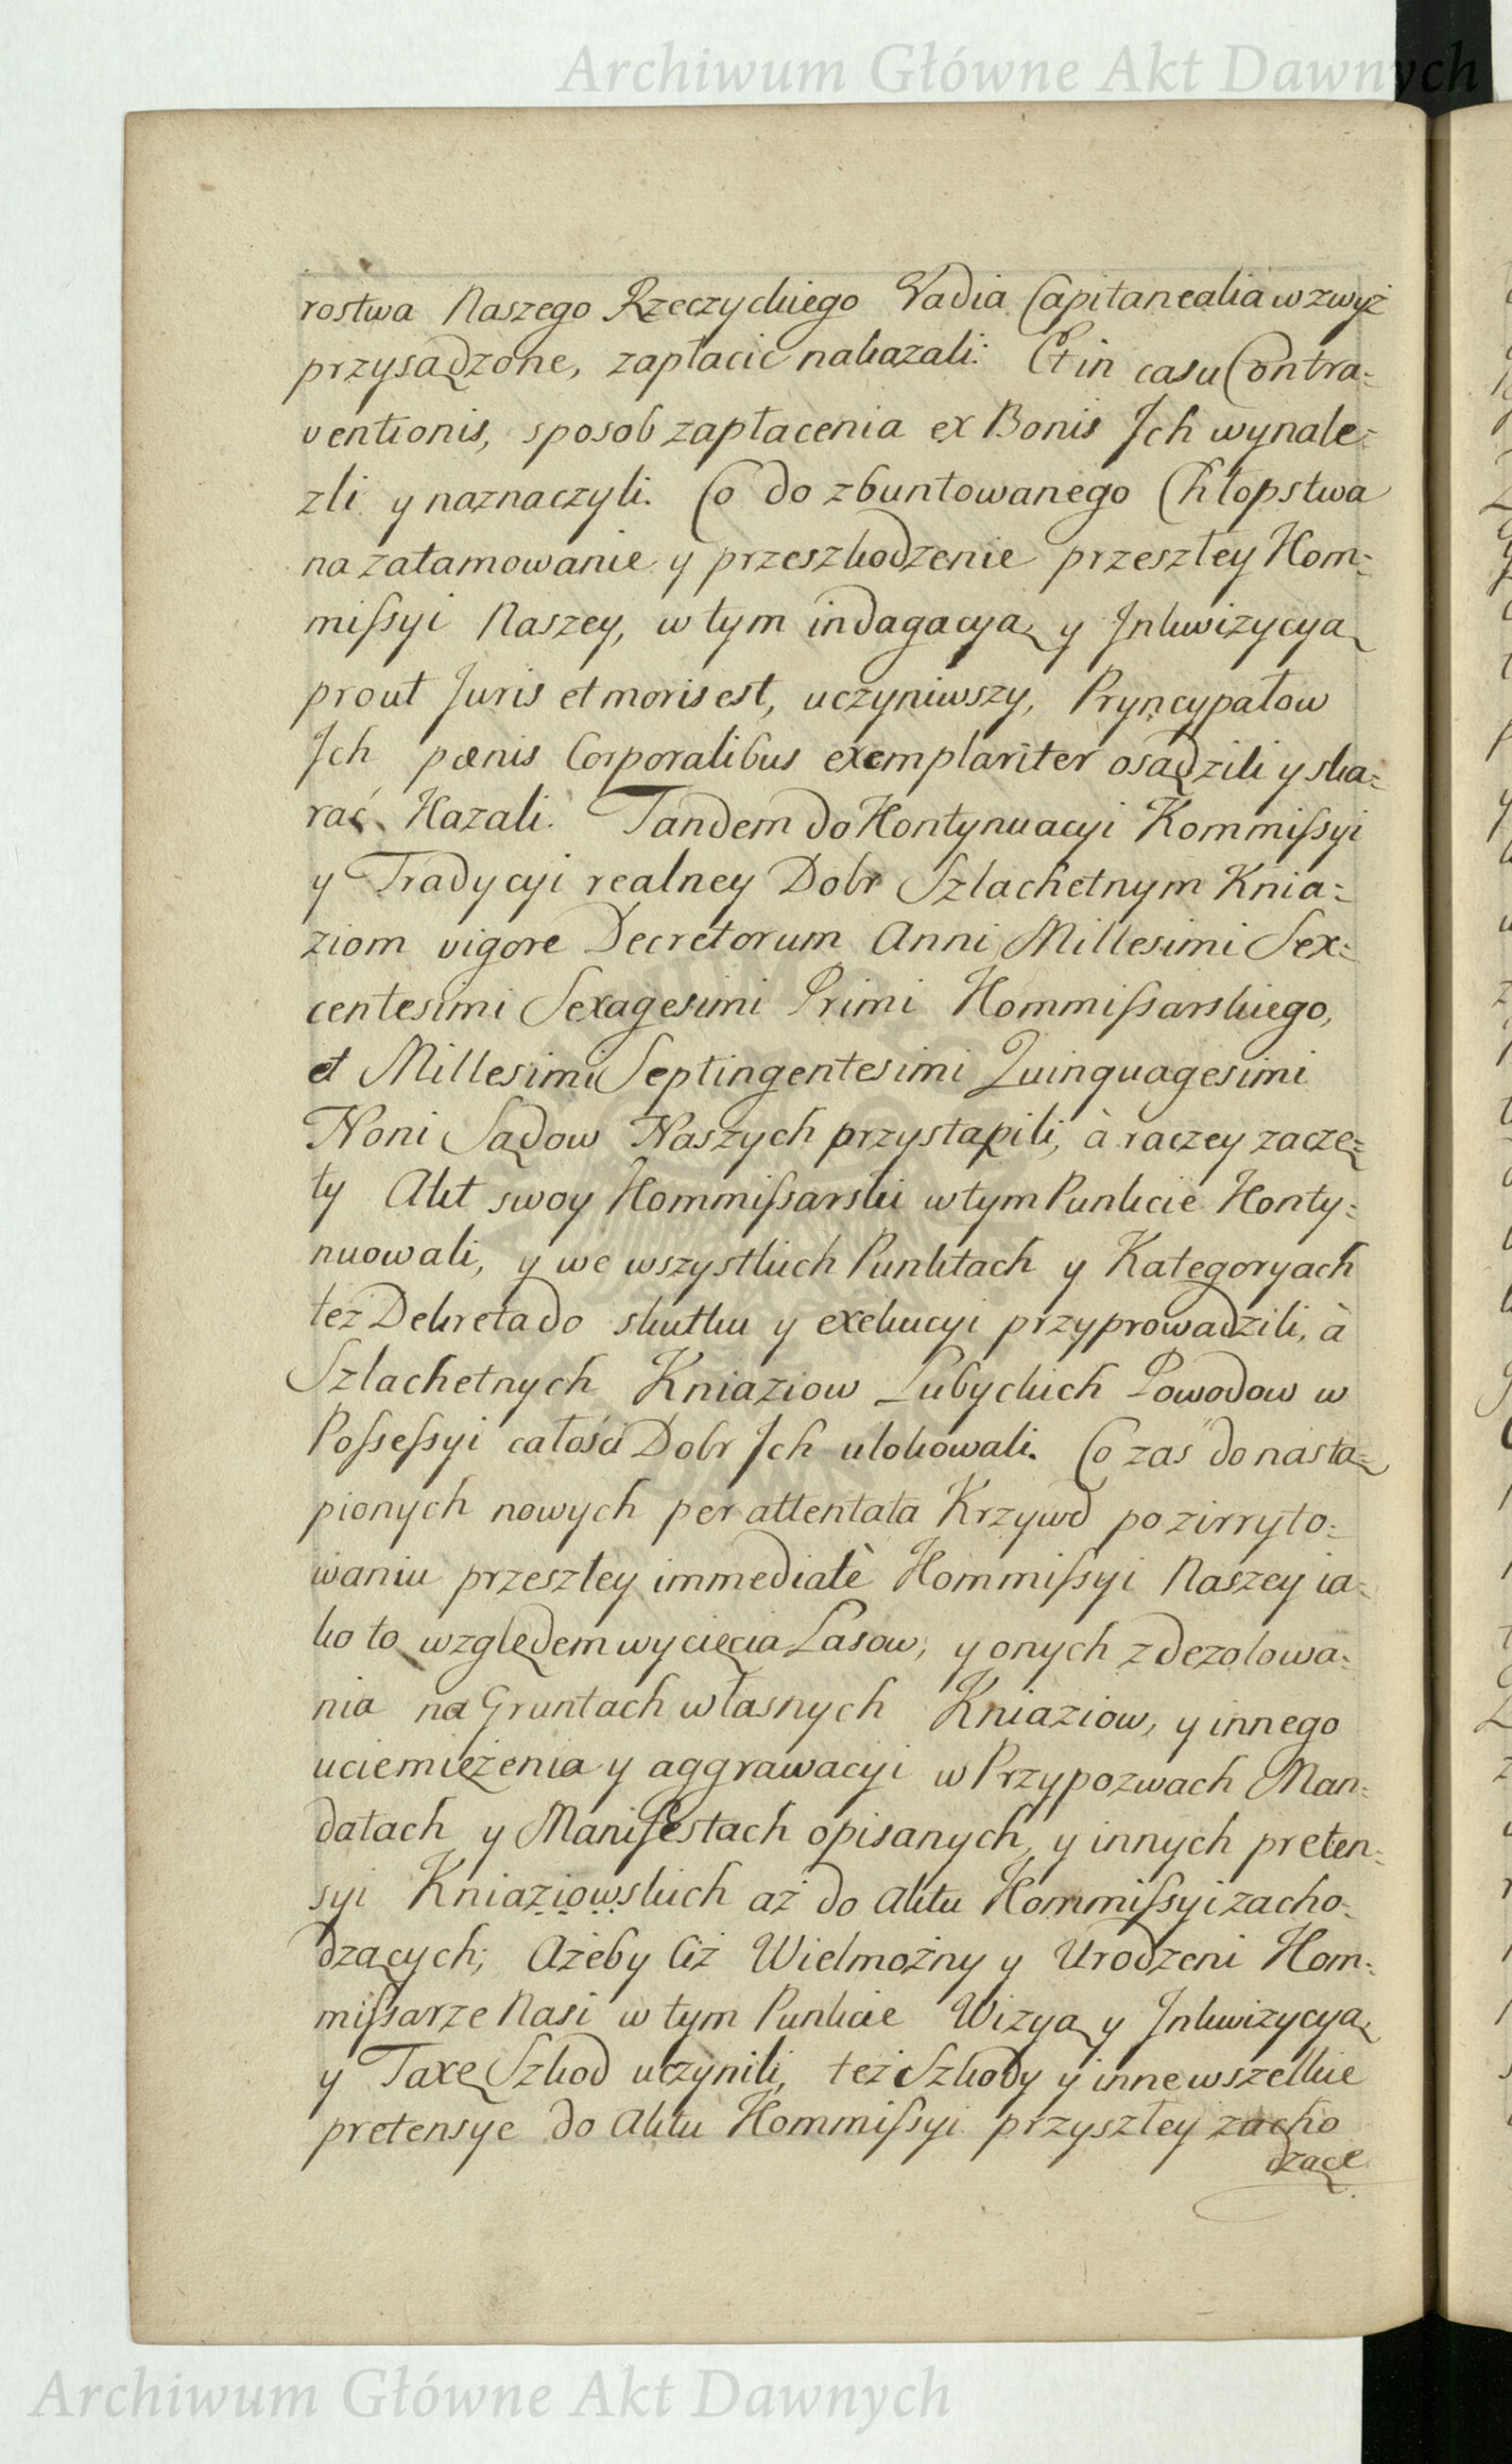 Archiwum Główne Akt Dawnych
rostwa Naszego Rzeczyckiego Vadia Capitanealia wzwyż
przysądzone, zapłacić nakazali: Et in casu Contra=
ventionis, sposob zapłacenia ex Bonis Jch wynale=
zli y naznaczyli. Co do zbuntowanego Chłopstwa
na zatamowanie y przeszkodzenie przeszłey Kom=
mißyi Naszey, w tym indagacyą y Jnkwizycyą
prout Juris et moris est, uczyniwszy, Pryncypałow
Jch pœnis Corporalibus exemplariter osądzili y ska=
rać Kazali. Tandem do Kontynuacyi Kommißyi
y Tradycyi realney Dobr Szlachetnym Knia=
ziom vigore Decretorum Anni Millesimi Sex=
centesimi Sexagesimi Primi Kommißarskiego,
et Millesimi Septingentesimi Quinquagesimi
Noni Sądow Naszych przystąpili, à raczey zaczę=
ty Akt swoy Kommißarski w tym Punkcie Konty=
nuowali, y we wszystkich Punktach y Kategoryach
też Dekreta do skutku y exekucyi przyprowadzili, à
Szlachetnych Kniaziow Lubyckich Powodow w
Poßeßyi całości Dobr Jch ulokowali. Co zaś do nastą=
pionych nowych per attentata Krzywd po zirryto=
waniu przeszłey immediatè Kommißyi Naszey ia=
ko to względem wycięcia Lasow, y onych zdezolowa=
nia na Gruntach własnych Kniaziow, y innego
uciemiężenia y aggrawacyi w Przypozwach Man=
datach y Manifestach opisanych, y innych preten=
syi Kniaziowskich aż do Aktu Kommißyi zacho=
dzących; Ażeby Ciż Wielmożny y Urodzeni Kom=
mißarze Nasi w tym Punkcie Wizyą y Jnkwizycyą
y Taxę Szkod uczynili, też Szkody y inne wszelkie
pretensye do Aktu Kommißyi przyszłey zacho
dzące
Archiwum Główne Akt Dawnych